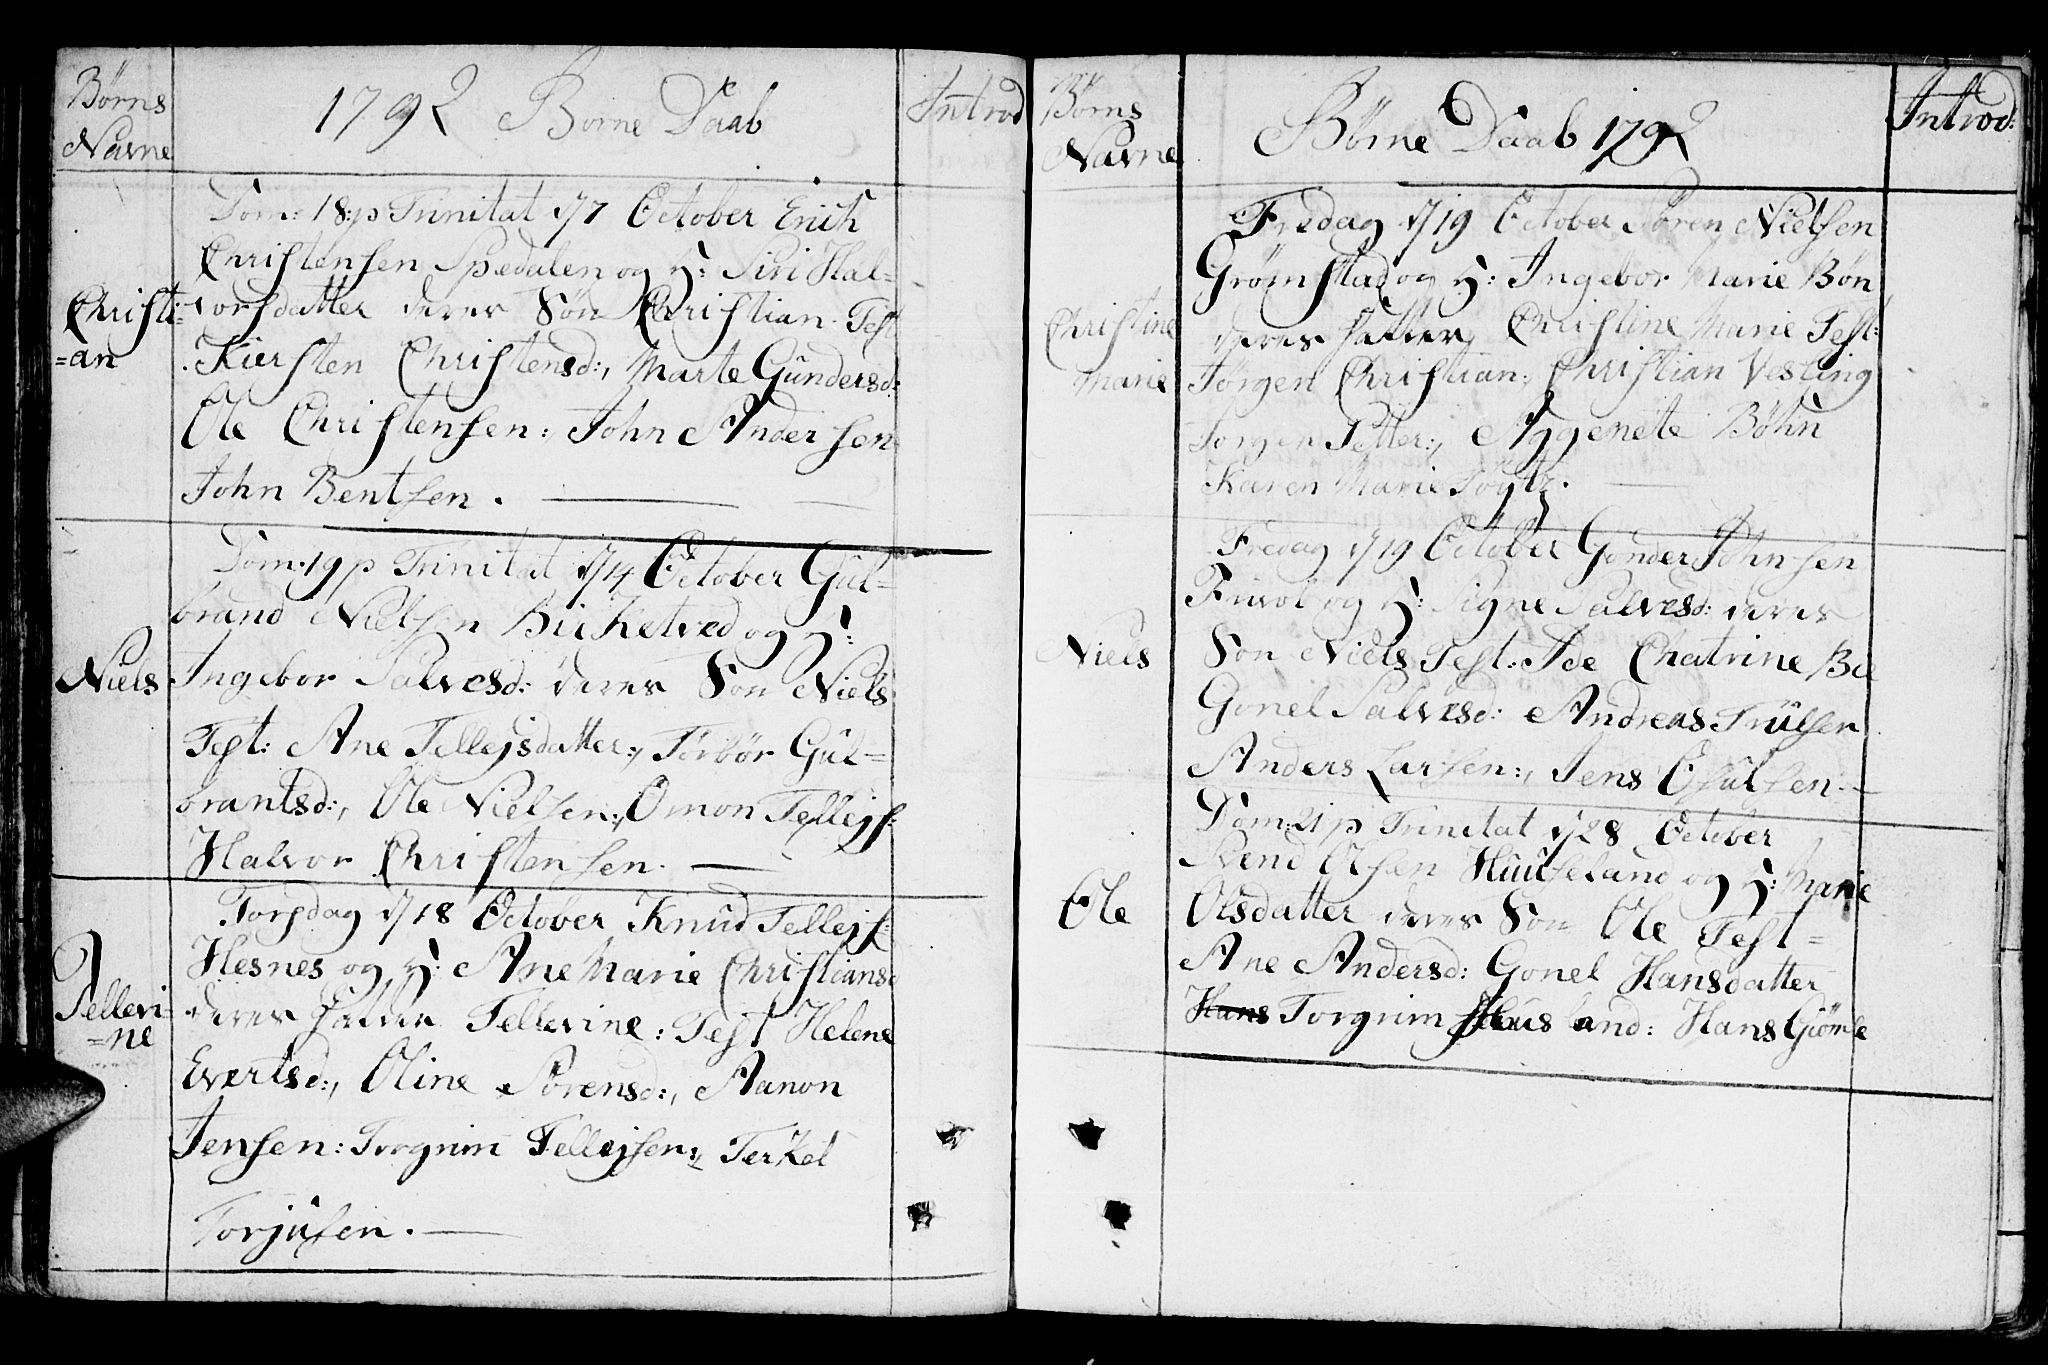 Børns
Navne
1792 Børne Daab
Introd
Dom: 18 p Trinitat d/7 October Erich
Christensen Spedalen og H: Siri Hal-
Christi- vorsdatter deres Søn Christian. Test
=an Kiersten Christensd:, Marte Gundersd:
Ole Christensen:, John Andersen
John Bentsen.
Dom: 19 p Trinitat d/14 October Gul=
brand Nielsen Birketved og H:
Niels Ingebor Salvesd: deres Søn Niels
Test: Ane Tellejsdatter:, Torbør Gul=
brantsd:, Ole Nielsen:, Omon Tellejs:
Halvor Christensen.
Torsdag d/18 October Knud Tellejs:
Hesnes og H: Ane Marie Christiansd
Tellevi= deres Datter Tellevine: Test Helene
=ne
Evertsd:, Oline Sørensd:, Aanon
Jensen: Torgrim Tellejsen:, Terkel
Torjusen.
Børns
Navne
Børne Daab 1792
Introd:
Fredag d/19 October Søren Nielsen
Grømstad og H: Ingebor Marie Bøn
Christine deres Datter Christine Marie Test:
Marie Jørgen Christian:, Christian Vesting
Jørgen Petter:, Aggenete Bøhn
Karen Marie
Fredag d/19 October Gonder Johnsen
Frivol og H: Signe Salvesd: deres
Niels Søn Niels Test: Ide Chatrine Bie
Gonel Salvesd: Andreas Trulsen
Anders Larsen:, Jens Osulsen.
Dom: 21 p Trinitat d/28 October
Svend Olsen Huuseland og H: Marie
Ole Olsdatter deres Søn Ole Test=
Ane Andersd: Gonel Hansdatter
Hans Torgrim Huusland: Hans Giømle